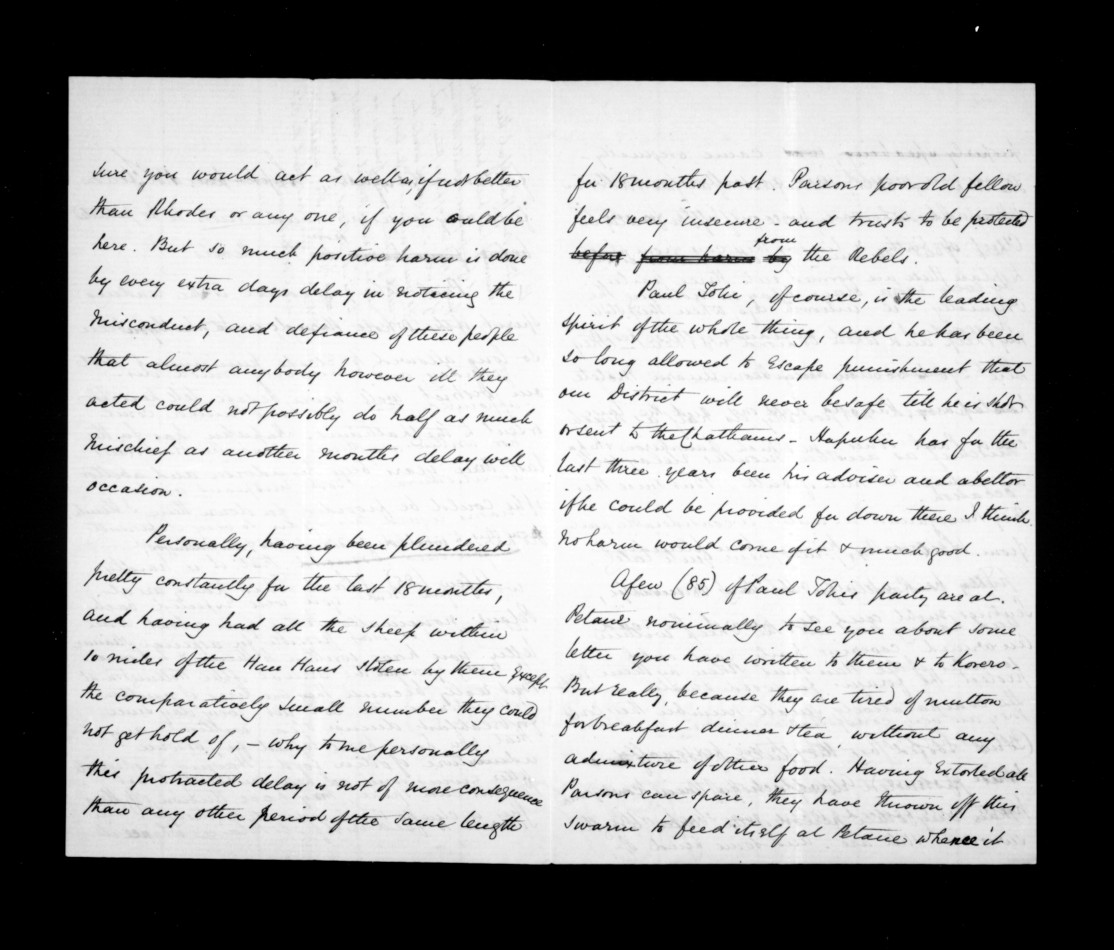 sure you would act as well as, if not better
than Rhodes or any one, if you could be
here. But so much positive harm is done
by every extra days delay in noticing the
misconduct, and defiance of these people
that almost anybody however ill they
acted could not possibly do half as much
mischief as another months delay will
occasion.
Personally, having been plundered
pretty constantly for the last 18 months,
and having had all the sheep within
10 miles of the Hau Haus stolen by them except
the comparatively small number they could
not get hold of, - why to me personally
this protracted delay is not of more consequence
than any other period of the same length
for 18 months past. Parsons poor old fellow
feels very insecure - and trusts to be protected
before from harm by from the Rebels.
Paul Tohi, of course, is the leading
spirit of the whole thing, and he has been
so long allowed to escape punishment that
our District will never be safe till he is shot
or sent to the Chathams - Hapuku has for the
last three years been his adviser and abettor
if he could be provided for down there I think
no harm would come of it & much good.
A few (85) of Paul Tohis party are at
Petane nominally to see you about some
letter you have written to them & to korero -
But really, because they are tired of mutton
for breakfast dinner & tea without any
admixture of other food. Having extorted all
Parsons can spare, they have thrown off this
swarm to feed itself at Petane whence it